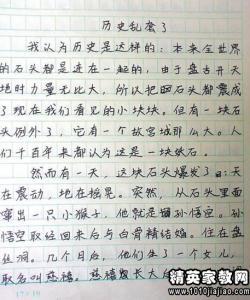 历史乱套了
我认为历史是这样的：本来全世界
的石头都是连在一起的，由于盘古开天
地时力量无比大，所以把四石头都震成
了现在我们看见的小块块。但有一块石
头例外了，它有一个故宫城那么大。人
们千百年来都认为这是一块妖石。
然而有一天，这块石头爆发了：天
在震动，地在摇晃。突然，从石头里面
窜出一只小猴子，他就是猢孙悟空。孙
悟空取经回来后与白骨精结婚。住在盘
丝洞。几个月后，他们生了一个女儿，
取名叫慈禧。慈禧长大
精英家教网
www.1010jiajiao.com